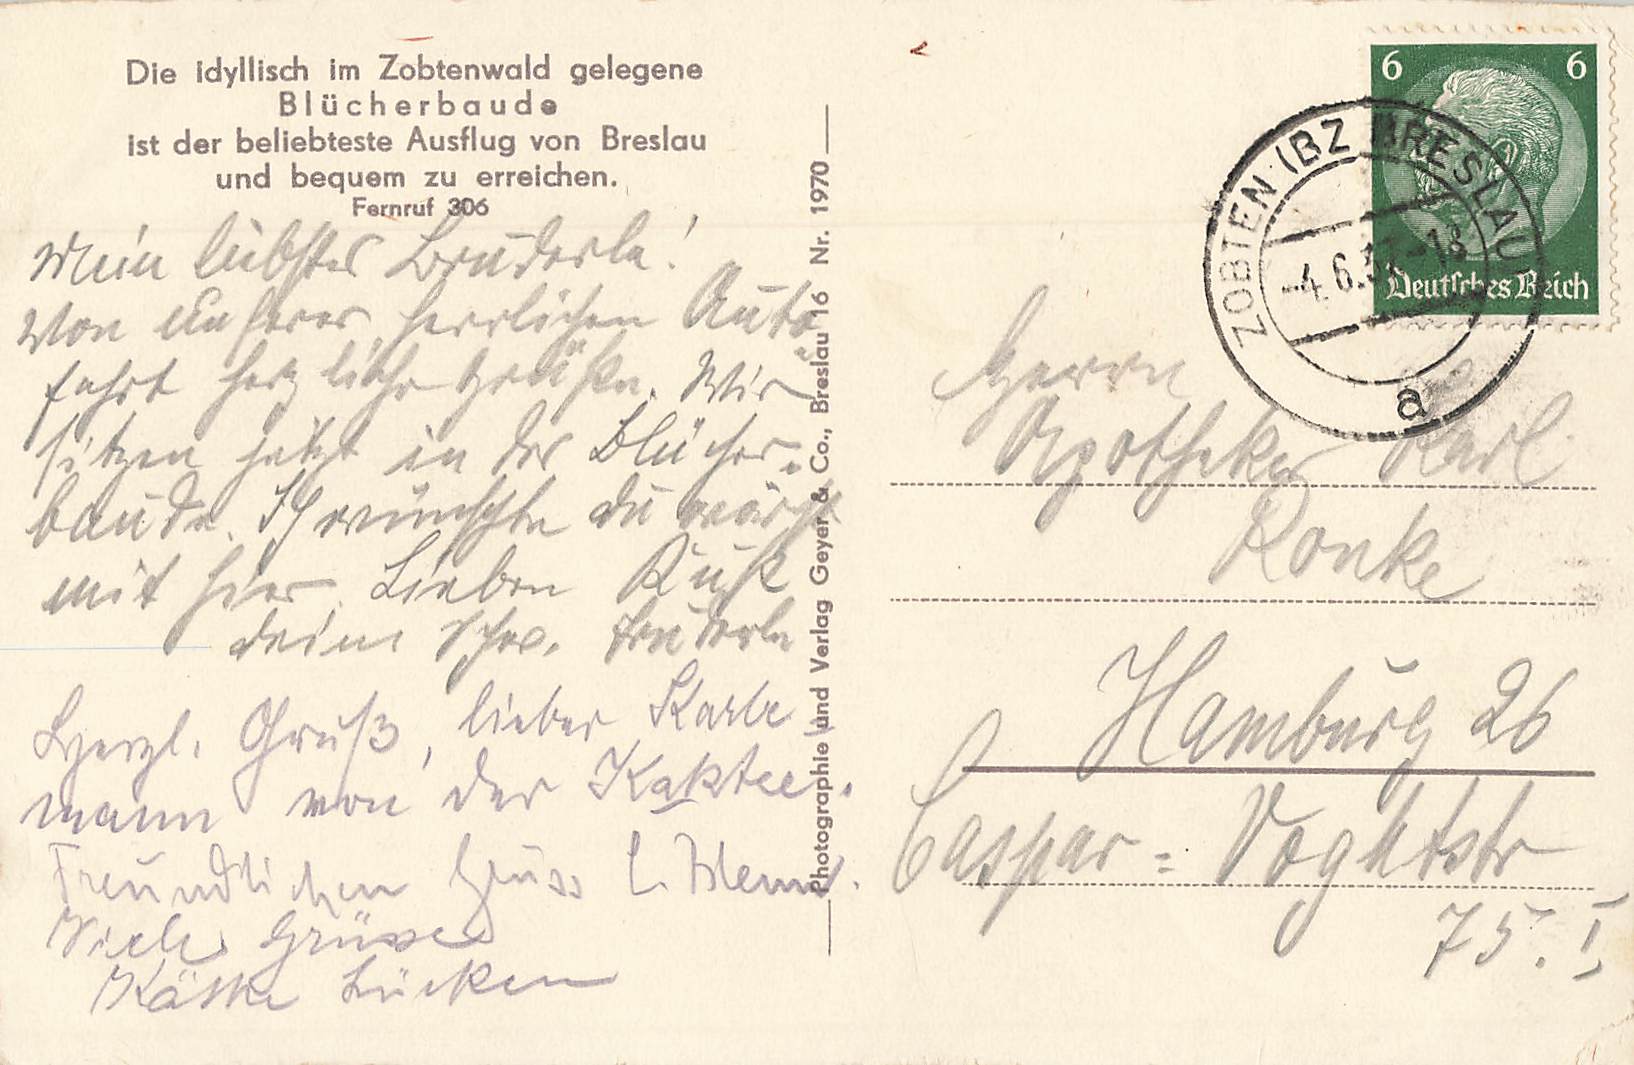 Die idyllisch im Zobtenwald gelegene
Blücherbaude
ist der beliebteste Ausflug von Breslau
und bequem zu erreichen.
Fernruf 306
Mein liebstes Bruderle!
Von unserer herrlichen Auto
fahrt herzliche Grüße. Wir
sitzen jetzt in der Blücher-
baude. Ich wünschte du wärst
mit hier. Lieben Kuß
dein Schw. Bruderle
Herzl. Gruß, lieber Karle
mann von der Kaktee.
Freundlichen Gruss
Viele Grüsse
Käthe Lücken
Photographie und Verlag Geyer & Co., Breslau 16 Nr. 1970
6 6
Deutsches Reich
ZOBTEN (BZ BRESLAU)
-4.6.37-18
a
Herrn
Apotheker Karl
Ronke
Hamburg 26
Caspar = Voghtstr
75. I,